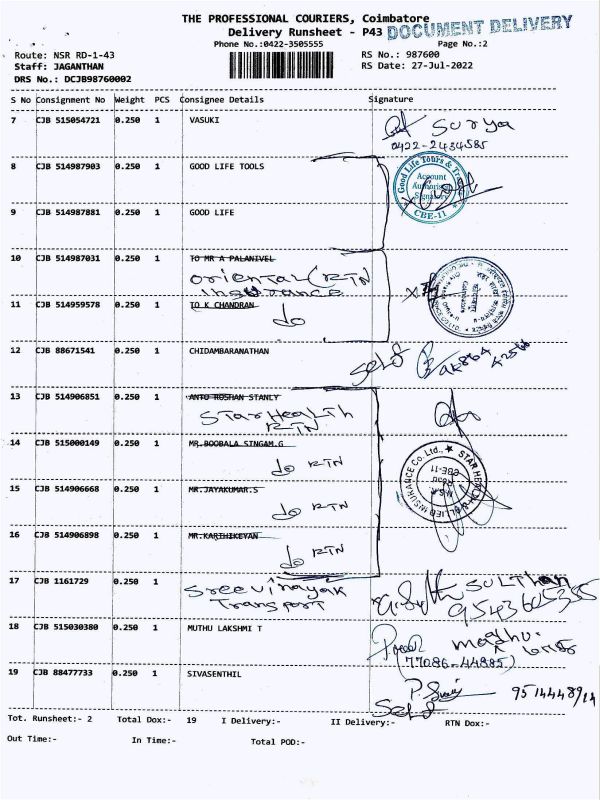 THE PROFESSIONAL COURIERS, Coimbatore
Delivery Runsheet - P43 DOCUMENT DELIVERY
Phone No.:0422-3505555 Page No.:2
Route: NSR RD-1-43 RS No.: 987600
Staff: JAGANTHAN RS Date: 27-Jul-2022
DRS No.: DCJB98760002
S No Consignment No Weight PCS Consignee Details Signature
7 CJB 515054721 0.250 1 VASUKI Surya
0422-2434585
8 CJB 514987903 0.250 1 GOOD LIFE TOOLS
Good Life Tours & Account Authorised Signatory CBE-11
9 CJB 514987881 0.250 1 GOOD LIFE
10 CJB 514987031 0.250 1 TO MR A PALANIVEL
oriental (RTN
insurance
11 CJB 514959578 0.250 1 TO K CHANDRAN
do
12 CJB 88671541 0.250 1 CHIDAMBARANATHAN Self
13 CJB 514906851 0.250 1 ANTO ROSHAN STANLY
Star Health
RTN
14 CJB 515000149 0.250 1 MR.BOOBALA SINGAM.G
do RTN
STAR HEALTH & ALLIED INSURANCE Co. Ltd., CBE-11
15 CJB 514906668 0.250 1 MR.JAYAKUMAR.S
do RTN
16 CJB 514906898 0.250 1 MR.KARTHIKEYAN
do RTN
17 CJB 1161729 0.250 1 Sree vinayak SULThan
Transport
18 CJB 515030380 0.250 1 MUTHU LAKSHMI T
77086-44885)
19 CJB 88477733 0.250 1 SIVASENTHIL
Self
Tot. Runsheet:- 2 Total Dox:- 19 I Delivery:- II Delivery:- RTN Dox:-
Out Time:- In Time:- Total POD:-